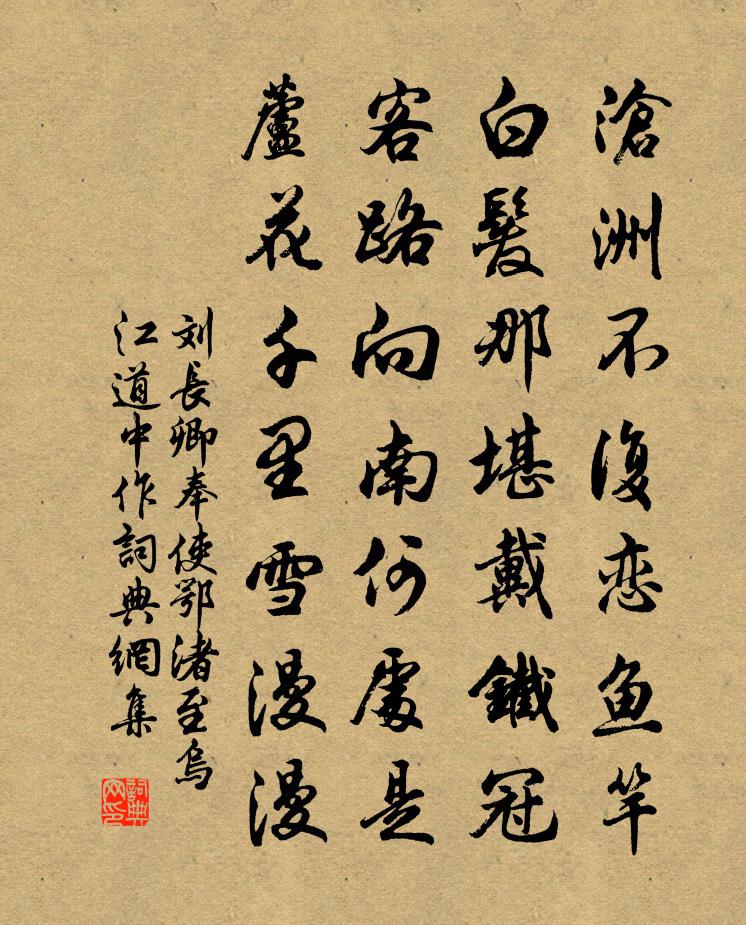 滄洲不復恋鱼竿
白髮那堪戴鐵冠
客路向南何處是
蘆花千里雪漫漫
刘長卿奉使鄂渚至烏
江道中作詞典網集
詞典
网印